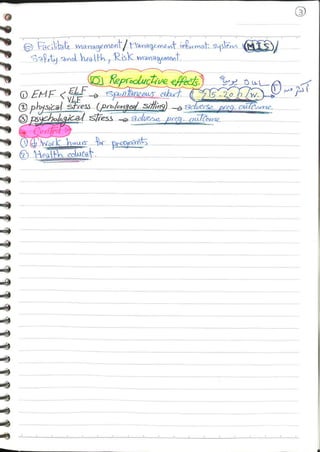 3
⑥ Facilitate management / Management informat. system (MIS) /
Safety and health, Risk management.
Reproductive effects
① EMF < ELF VLF → spontaneous abort. 15-20 h/w
② physical stress (prolonged sitting) → adverse preg. outcome
③ psychological stress → adverse preg. outcome
Control
① ↓ Work hours for pregnants
② Health educat.